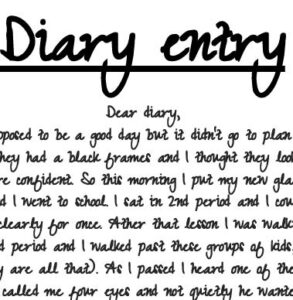 Diary entry
Dear diary,
posed to be a good day but it didn't go to plan
they had a black frames and I thought they loo
re confident. So this morning I put my new gla
d I went to school. I sat in 2nd period and I cou
clearly for once. Ather that lesson I was walk
d period and I walked past these groups of kids
y are all that). As I passed I heard one of the
called me four eyes and not quietly he wante